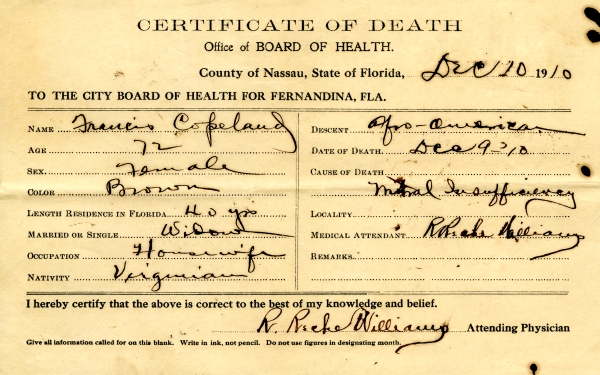 CERTIFICATE OF DEATH
Office of BOARD OF HEALTH.
County of Nassau, State of Florida, Dec 10 1910
TO THE CITY BOARD OF HEALTH FOR FERNANDINA, FLA.
NAME Francis Copeland
AGE 72
SEX. Female
COLOR Brown
LENGTH RESIDENCE IN FLORIDA 40 yrs
MARRIED OR SINGLE Widow
OCCUPATION Housewife
NATIVITY Virginian
DESCENT Afro-American
DATE OF DEATH. Dec 9-10
CAUSE OF DEATH
Mitral Insufficiency
LOCALITY
MEDICAL ATTENDANT R Reche Williams
REMARKS
I hereby certify that the above is correct to the best of my knowledge and belief.
R. Reche Williams Attending Physician
Give all information called for on this blank. Write in ink, not pencil. Do not use figures in designating month.